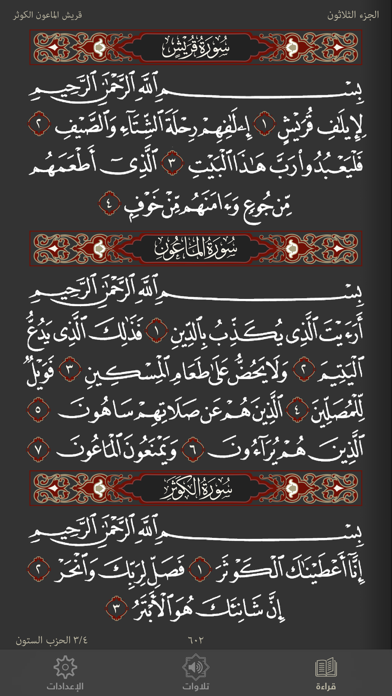 الجزء الثلاثون
قريش الماعون الكوثر
سُورَةُ قُرَيْشٍ
بِسْمِ ٱللَّهِ ٱلرَّحْمَٰنِ ٱلرَّحِيمِ
لِإِيلَٰفِ قُرَيْشٍ ١ إِۦلَٰفِهِمْ رِحْلَةَ ٱلشِّتَآءِ وَٱلصَّيْفِ ٢
فَلْيَعْبُدُوا۟ رَبَّ هَٰذَا ٱلْبَيْتِ ٣ ٱلَّذِىٓ أَطْعَمَهُم
مِّن جُوعٍ وَءَامَنَهُم مِّنْ خَوْفٍۭ ٤
سُورَةُ المَاعُونِ
بِسْمِ ٱللَّهِ ٱلرَّحْمَٰنِ ٱلرَّحِيمِ
أَرَءَيْتَ ٱلَّذِى يُكَذِّبُ بِٱلدِّينِ ١ فَذَٰلِكَ ٱلَّذِى يَدُعُّ
ٱلْيَتِيمَ ٢ وَلَا يَحُضُّ عَلَىٰ طَعَامِ ٱلْمِسْكِينِ ٣ فَوَيْلٌ
لِّلْمُصَلِّينَ ٤ ٱلَّذِينَ هُمْ عَن صَلَاتِهِمْ سَاهُونَ ٥
ٱلَّذِينَ هُمْ يُرَآءُونَ ٦ وَيَمْنَعُونَ ٱلْمَاعُونَ ٧
سُورَةُ الكَوْثَرِ
بِسْمِ ٱللَّهِ ٱلرَّحْمَٰنِ ٱلرَّحِيمِ
إِنَّآ أَعْطَيْنَٰكَ ٱلْكَوْثَرَ ١ فَصَلِّ لِرَبِّكَ وَٱنْحَرْ ٢
إِنَّ شَانِئَكَ هُوَ ٱلْأَبْتَرُ ٣
٦٠٢
٣/٤ الحزب الستون
قراءة
تلاوات
الإعدادات